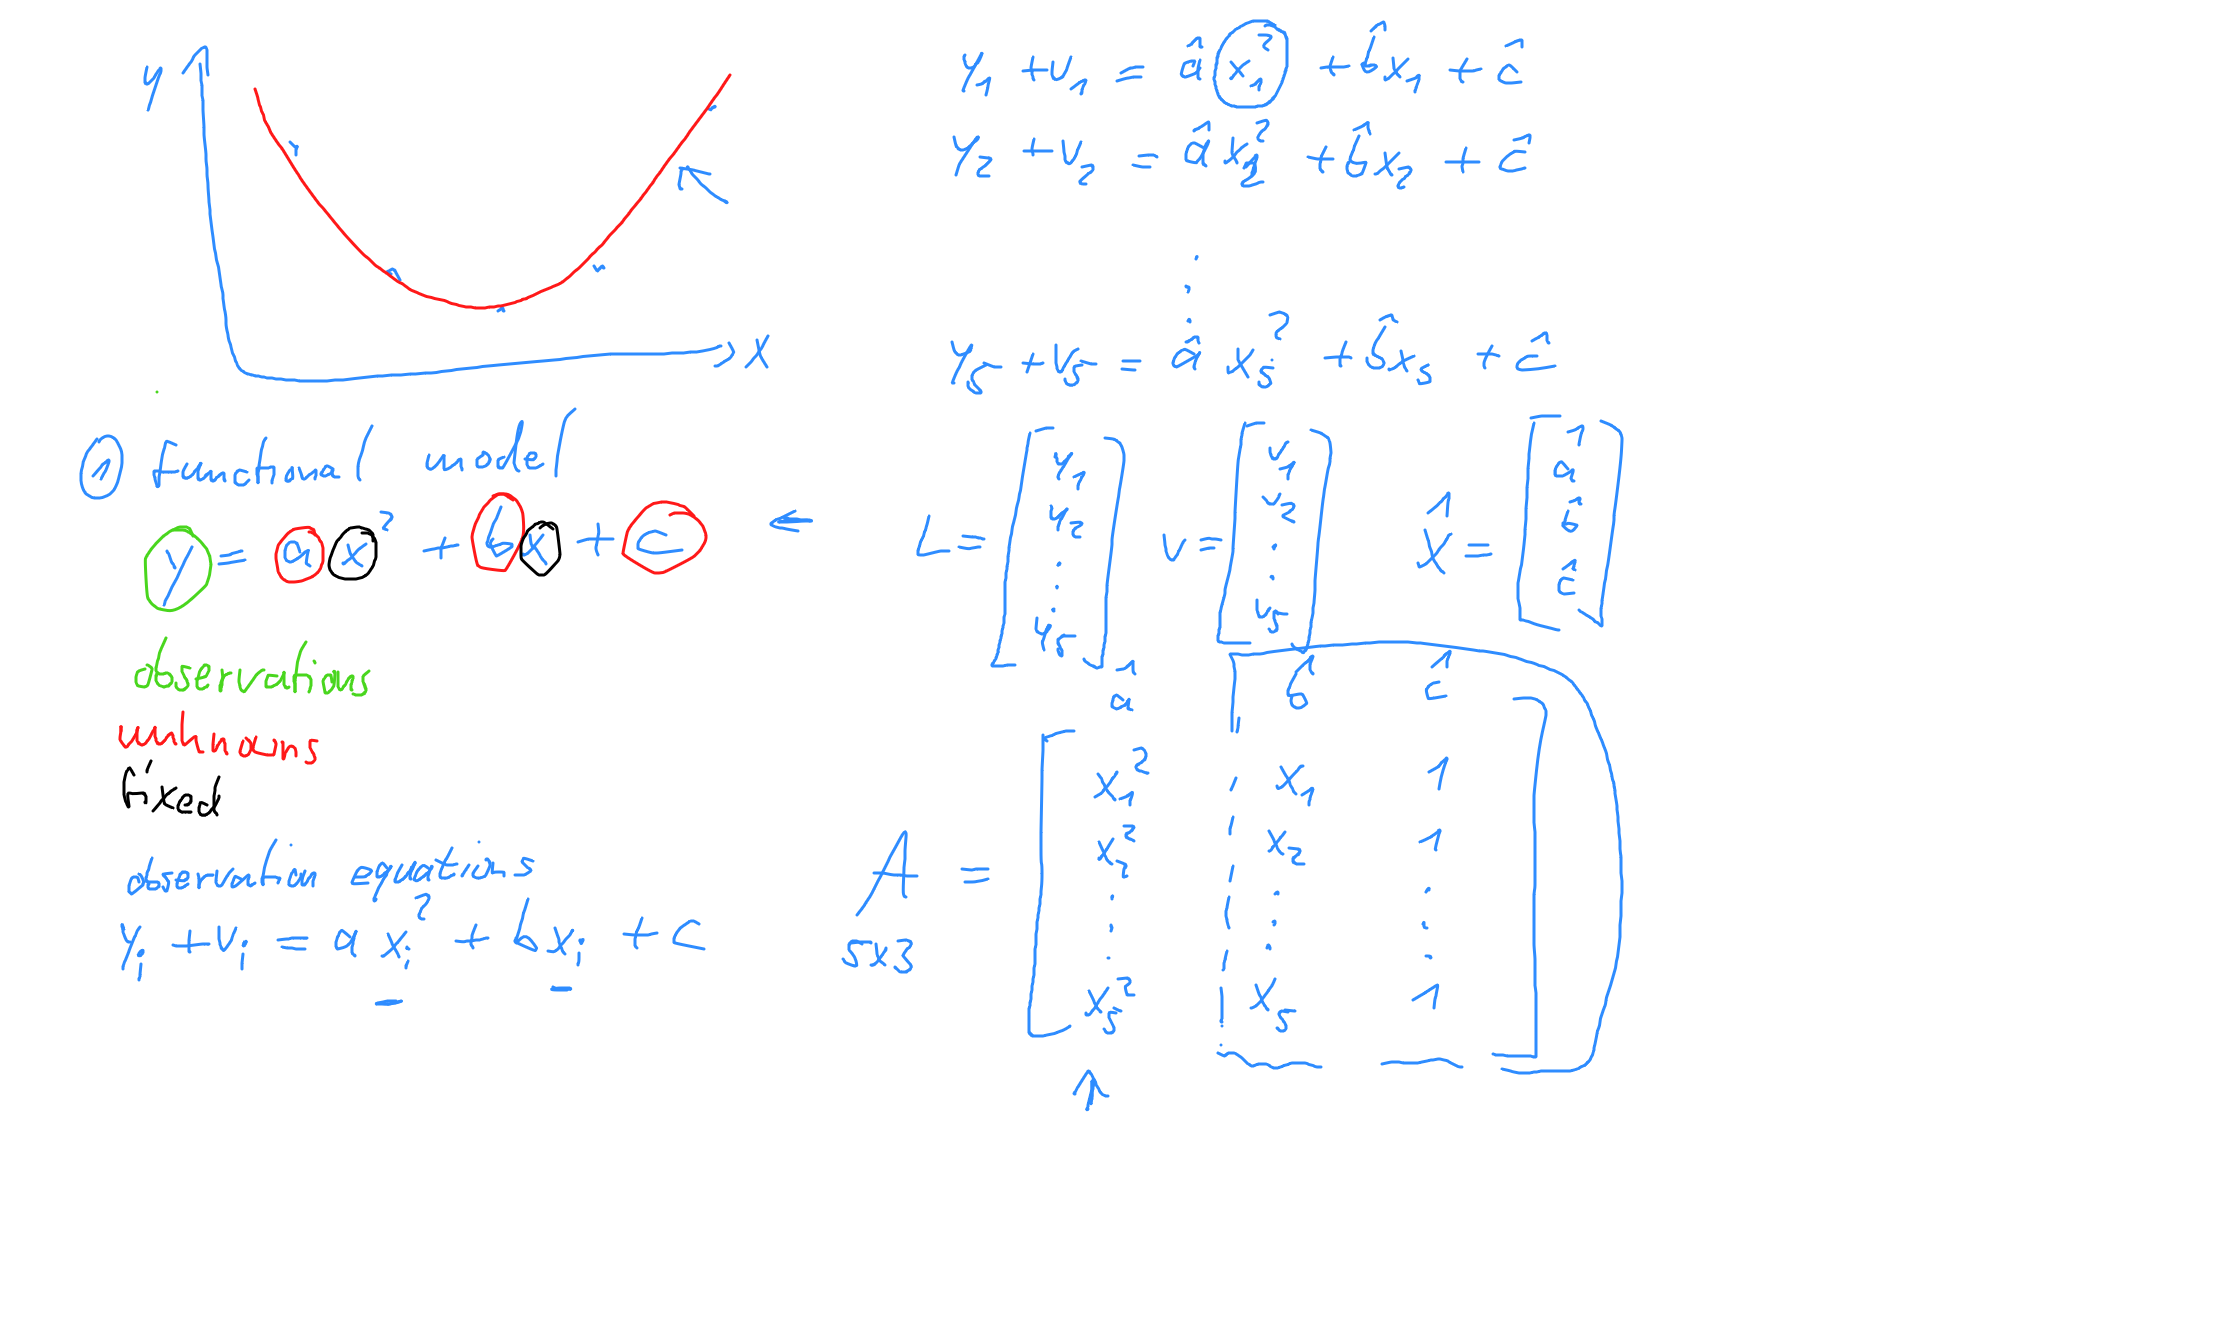 y
x
① functional model
y = a x² + b x + c ←
observations
unknowns
fixed
observation equations
yᵢ + vᵢ = a xᵢ² + b xᵢ + c
y₁ + v₁ = â x₁² + b̂ x₁ + ĉ
y₂ + v₂ = â x₂² + b̂ x₂ + ĉ
⋮
y₅ + v₅ = â x₅² + b̂ x₅ + ĉ
L = [y₁ y₂ ⋮ y₅] v = [v₁ v₂ ⋮ v₅] X̂ = [â b̂ ĉ]
â b̂ ĉ
x₁² x₁ 1
x₂² x₂ 1
A =
⋮ ⋮ ⋮
5x3
x₅² x₅ 1
↑